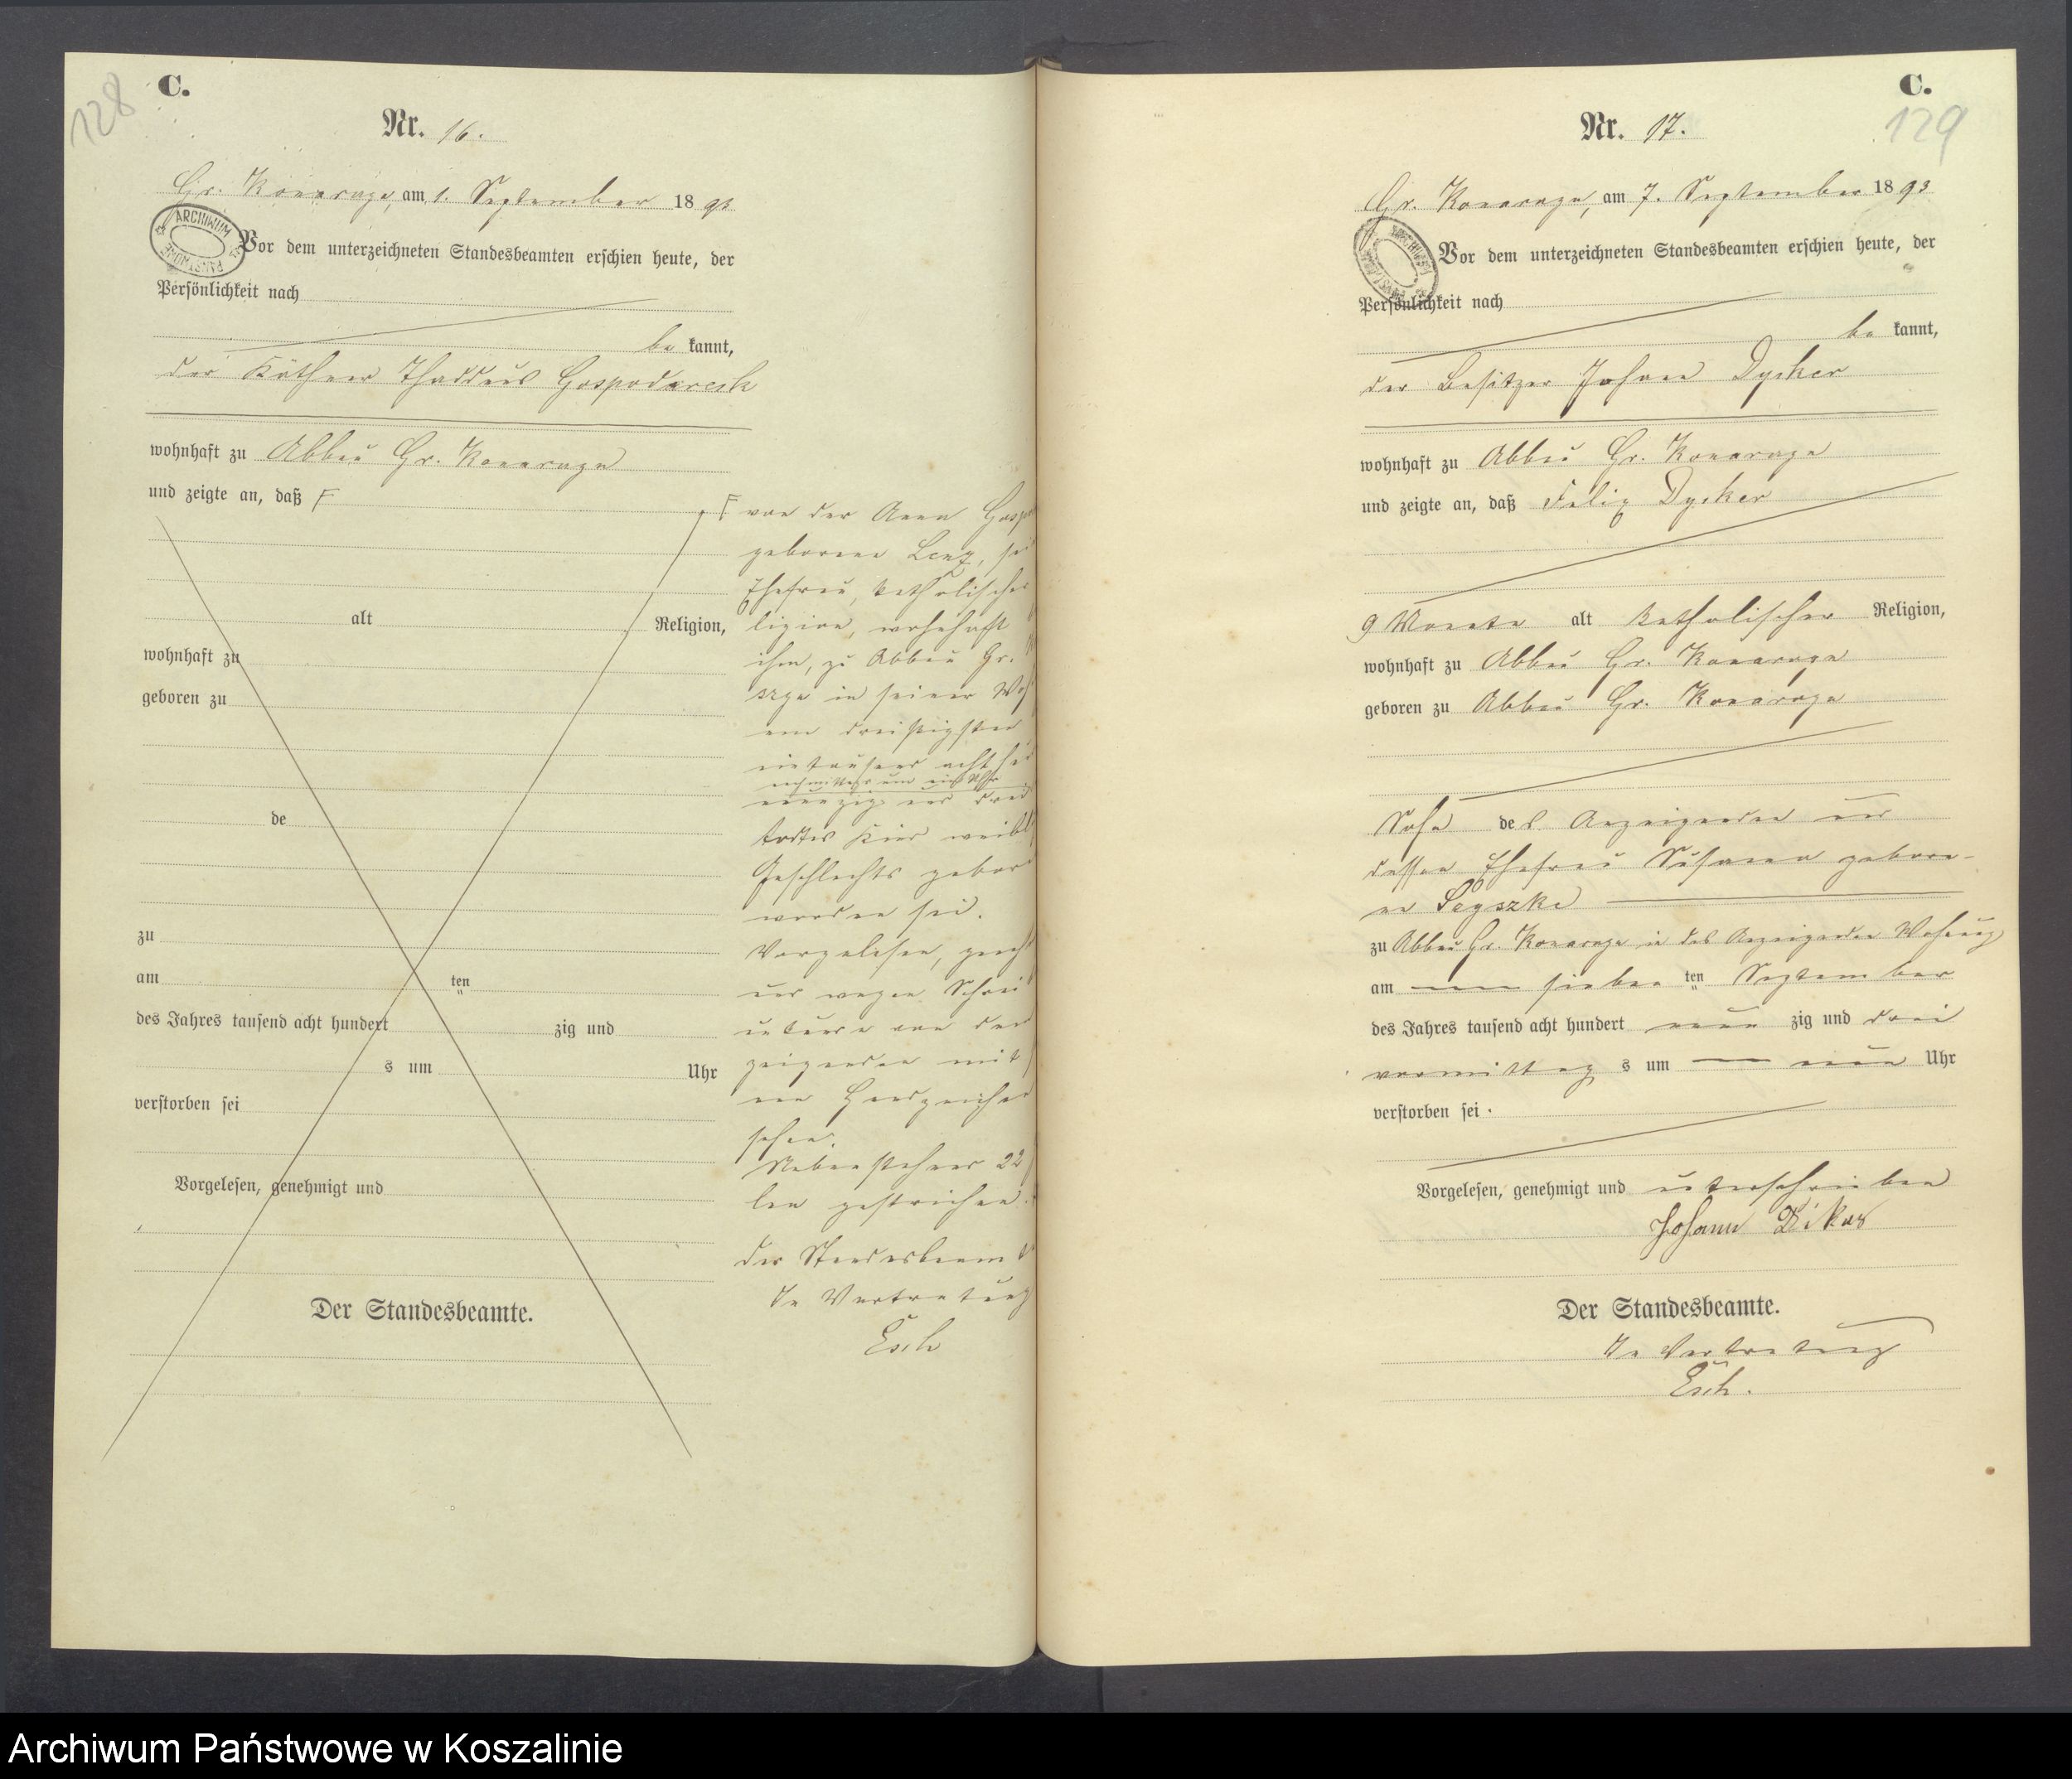 128
C.
Nr. 16.
Gr. Konarczyn, am 1. September 1893
ARCHIWUM PAŃSTWOWE
Vor dem unterzeichneten Standesbeamten erschien heute, der
Persönlichkeit nach
be kannt,
der Käthner Thaddeus Gospodarek
wohnhaft zu Abbau Gr. Konarczyn
und zeigte an, daß F
alt Religion,
wohnhaft zu
geboren zu
de
zu
am ten
des Jahres tausend acht hundert zig und
s um Uhr
verstorben sei
Vorgelesen, genehmigt und
Der Standesbeamte.
F von der Anna Gosp
geborene Lenz,
Ehefrau, katholischer
ligion, wohnhaft
ihm, zu Abbau Gr.
in seiner Woh
am dreißigsten
eintausend acht
nachmittags um ein Uhr
neunzig und drei
todtes Kind weibl
Geschlechts gebor
worden sei.
Vorgelesen, geneh
und wegen Schrei
unkunde von dem
zeigenden mit
nen Handzeichen
sehen.
Nebenstehend 22
len gestrichen.
Der Standesbeamt
In Vertretung
Esch
C.
129
Nr. 17.
Gr. Konarczyn, am 7. September 1893
Vor dem unterzeichneten Standesbeamten erschien heute, der
Persönlichkeit nach
be kannt,
der Besitzer Johann Dyker
wohnhaft zu Abbau Gr. Konarczyn
und zeigte an, daß Felix Dyker
9 Monate alt katholischer Religion,
wohnhaft zu Abbau Gr. Konarczyn
geboren zu Abbau Gr. Konarczyn
Sohn des Anzeigenden und
dessen Ehefrau Susanna gebore-
ne
zu Abbau Gr. Konarczyn in des Anzeigenden Wohnung
am sieben ten September
des Jahres tausend acht hundert neun zig und drei
vormittag s um neun Uhr
verstorben sei.
Vorgelesen, genehmigt und unterschrieben
Johann Dikar
Der Standesbeamte.
In Vertretung
Esch.
Archiwum Państwowe w Koszalinie